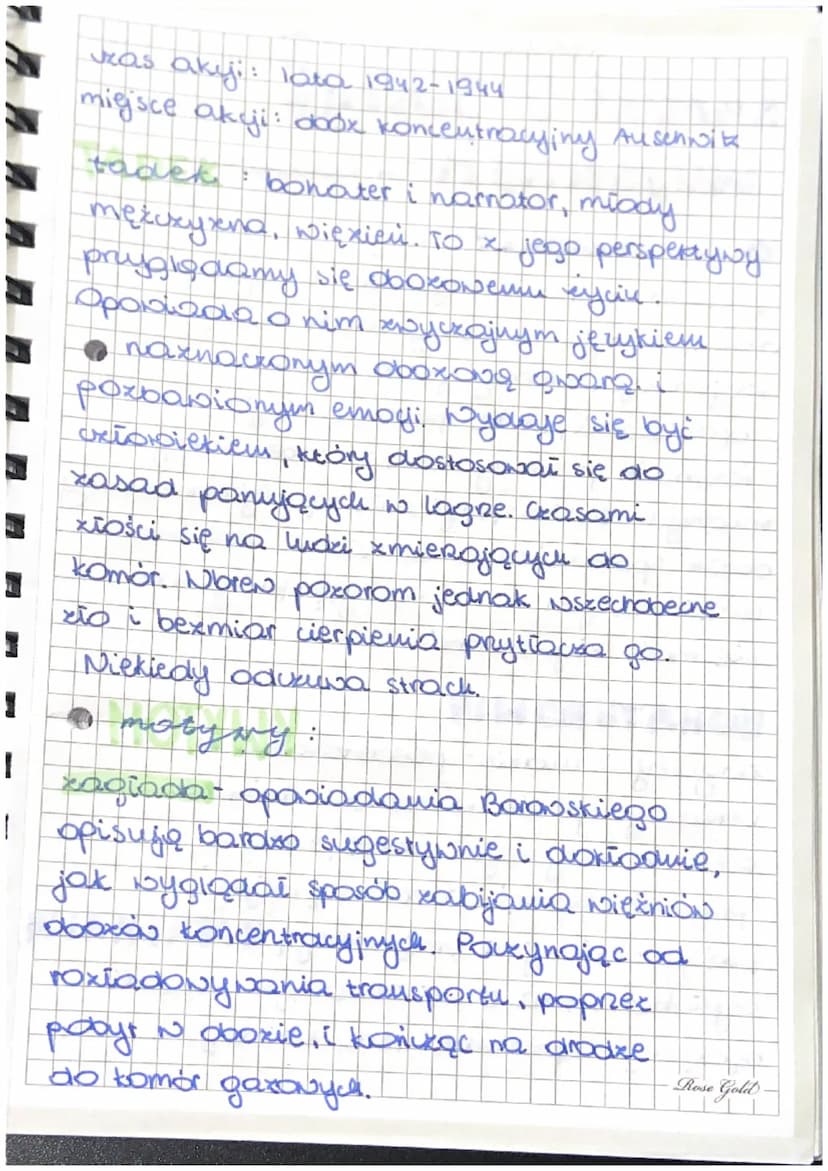 czas akcji: lata 1942-1944
miejsce akcji: obóz koncentracyjny Auschwitz
tadek: bohater i narrator, młody
mężczyzna, więzień. To z jego perspektywy
przyglądamy się obozowemu życiu.
Opowiada o nim zwyczajnym językiem
naznaczonym obozową gwarą i
pozbawionym emocji. Wydaje się być
człowiekiem, który dostosował się do
zasad panujących w lagrze. Czasami
złości się na ludzi zmierzających do
komór. Wbrew pozorom jednak wszechobecne
zło i bezmiar cierpienia przytłacza go.
Niekiedy odczuwa strach.
motywy:
zagłada- opowiadania Borowskiego
opisują bardzo sugestywnie i dokładnie,
jak wyglądał sposób zabijania więźniów
obozów koncentracyjnych. Poczynając od
rozładowywania transportu, poprzez
pobyt w obozie, i kończąc na drodze
do komór gazowych.
Rose Gold